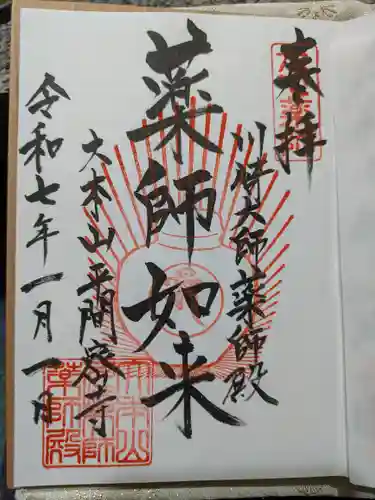 奉拝
川崎大師薬師殿
薬師如来
大本山平間寺
令和七年一月一日